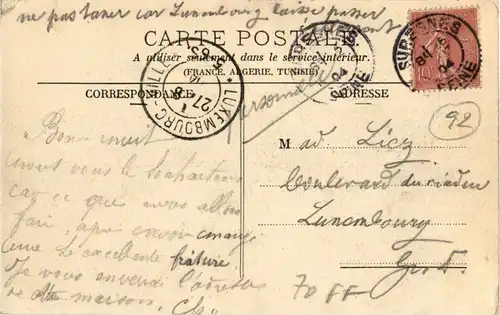 ne pas taxer car Luxembourg laisse passer
CARTE POSTALE
A utiliser seulement dans le service intérieur.
(FRANCE, ALGERIE, TUNISIE)
CORRESPONDANCE
ADRESSE
SURESNES
04
SEINE
SEINE
04
LUXEMBOURG-VILLE
27
8
personnelle
92
Bonne nuit
nous vous le souhaitons
car ce que nous allons
fair, apre savoir mangé
une excellente friture.
Je vous envoi l'adresse
de maison.
M ad. Licz
boulevard du viaduc
Luxembourg
Gr. D.
70 FF